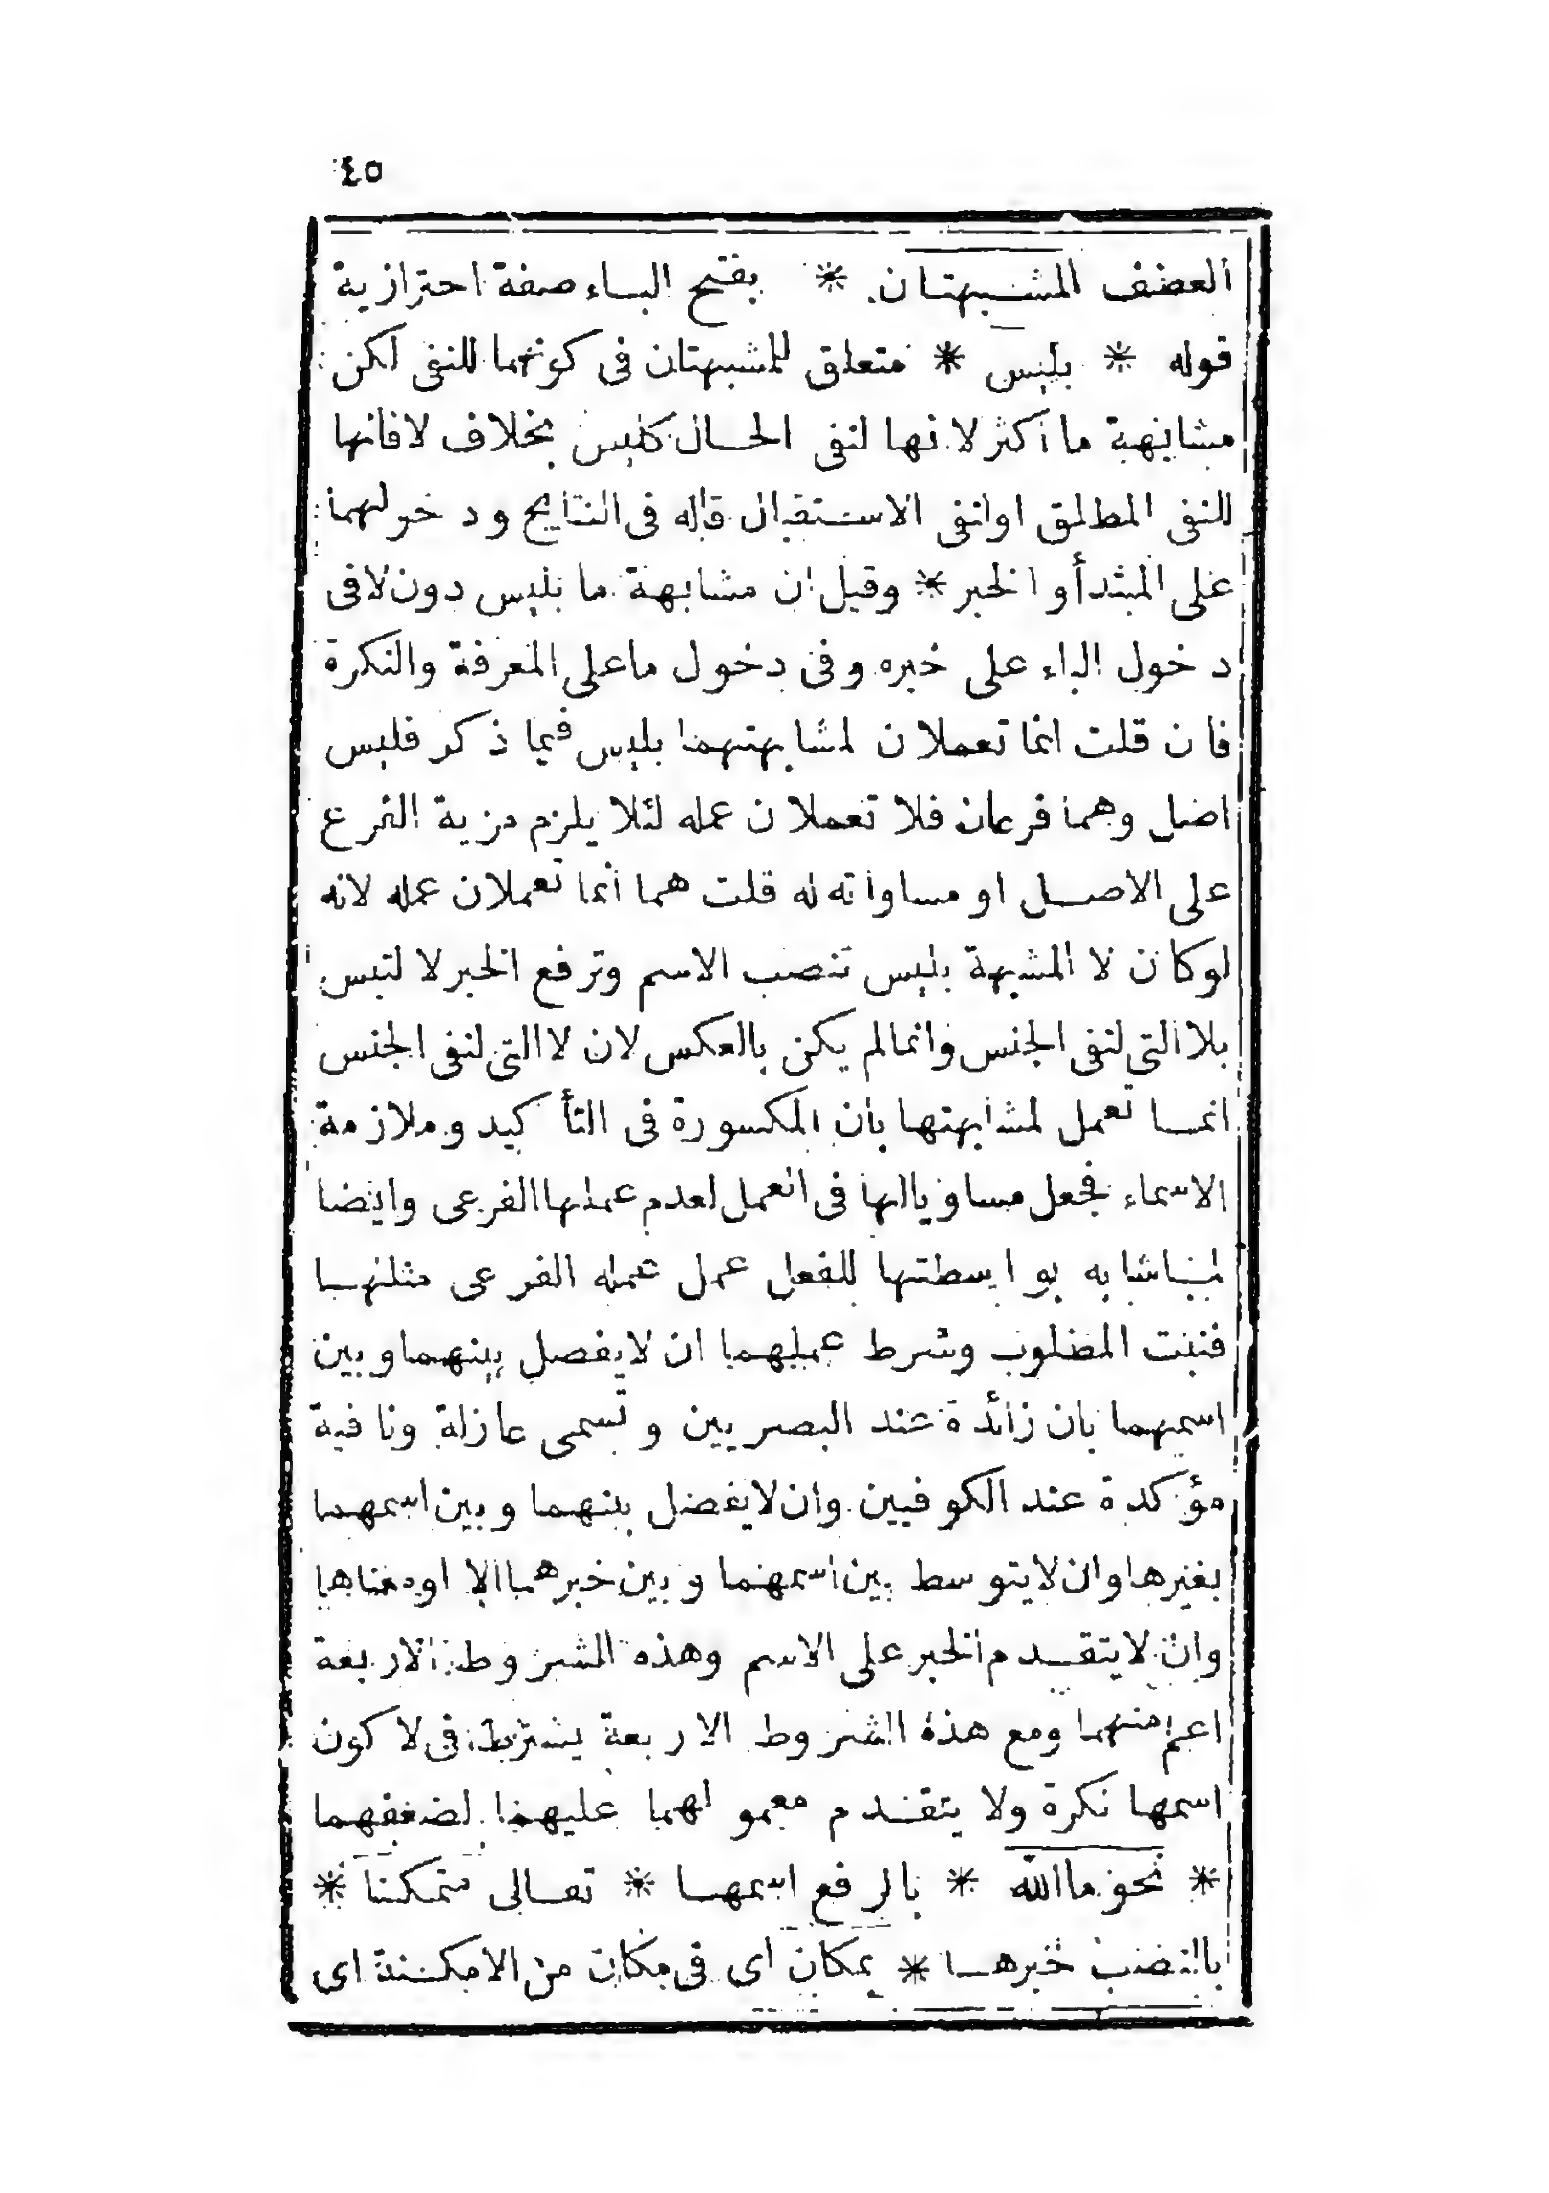 ٤٥
العطف المشبهتان * بفتح الباء صفة احترازية
قوله * بليس * متعلق للمشبهتان فى كونهما للنفى لكن
مشابهة ما أكثر لانها لنفى الحال كليس بخلاف لا فانها
للنفى المطلق اولنفى الاستقبال قاله فى النتايج ودخولهما
على المبتدأ والخبر * وقيل ان مشابهة ما بليس دون لا فى
دخول الباء على خبره وفى دخول ما على المعرفة والنكرة
فان قلت انما تعملان لمشابهتهما بليس فيما ذكر فليس
اصل وهما فرعان فلا تعملان عمله لئلا يلزم مزية الفرع
على الاصل او مساواته له قلت هما انما تعملان عمله لانه
لوكان لا المشبهة بليس تنصب الاسم وترفع الخبر لا لتبس
بلا التى لنفى الجنس وانمالم يكن بالعكس لان لا التى لنفى الجنس
انما تعمل لمشابهتها بان المكسورة فى التأكيد وملازمة
الاسماء فجعل مساويالها فى العمل لعدم عملها الفرعى وايضا
لما شابه بواسطتها للفعل عمل عمله الفرعى مثلها
فثبت المطلوب وشرط عملهما ان لايفصل بينهما وبين
اسمهما بان زائدة عند البصريين وتسمى عازلة ونافية
مؤكدة عند الكوفيين وان لايفصل بينهما وبين اسمهما
بغيرها وان لايتوسط بين اسمهما وبين خبرهما الا اومعناها
وان لايتقدم الخبر على الاسم وهذه الشروط الاربعة
اعم منهما ومع هذه الشروط الاربعة يشترط فى لا كون
اسمها نكرة ولا يتقدم معمولهما عليهما لضعفهما
* نحو ما الله * بالرفع اسمها * تعالى متمكنا *
بالنصب خبرها * بمكان اى فى مكان من الامكنة اى